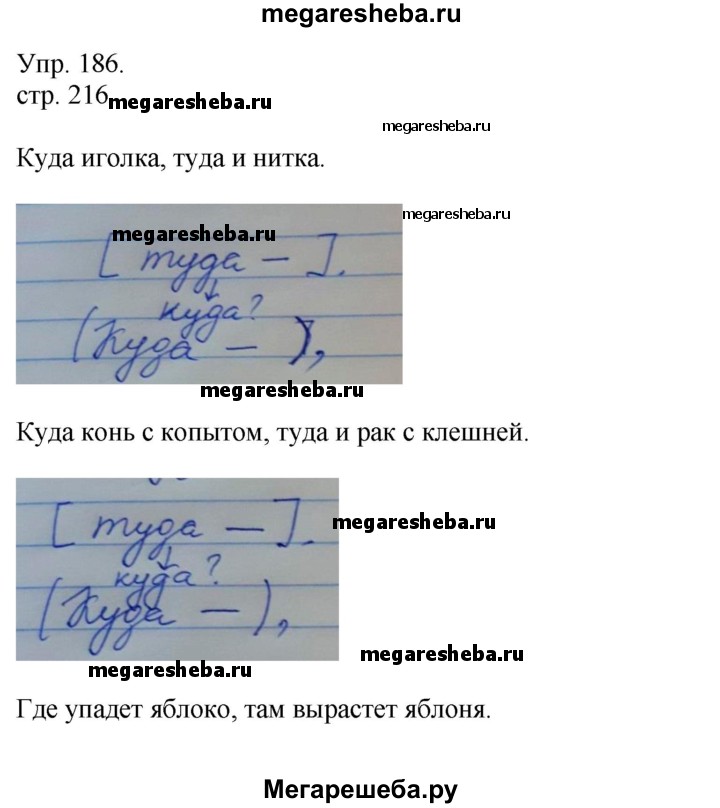 megaresheba.ru
Упр. 186.
стр. 216 megaresheba.ru
megaresheba.ru
Куда иголка, туда и нитка.
megaresheba.ru
megaresheba.ru
[ туда — ].
куда?
(Куда — ),
megaresheba.ru
Куда конь с копытом, туда и рак с клешней.
[ туда — ].
megaresheba.ru
куда?
(Куда — ),
megaresheba.ru
megaresheba.ru
Где упадет яблоко, там вырастет яблоня.
Мегарешеба.ру